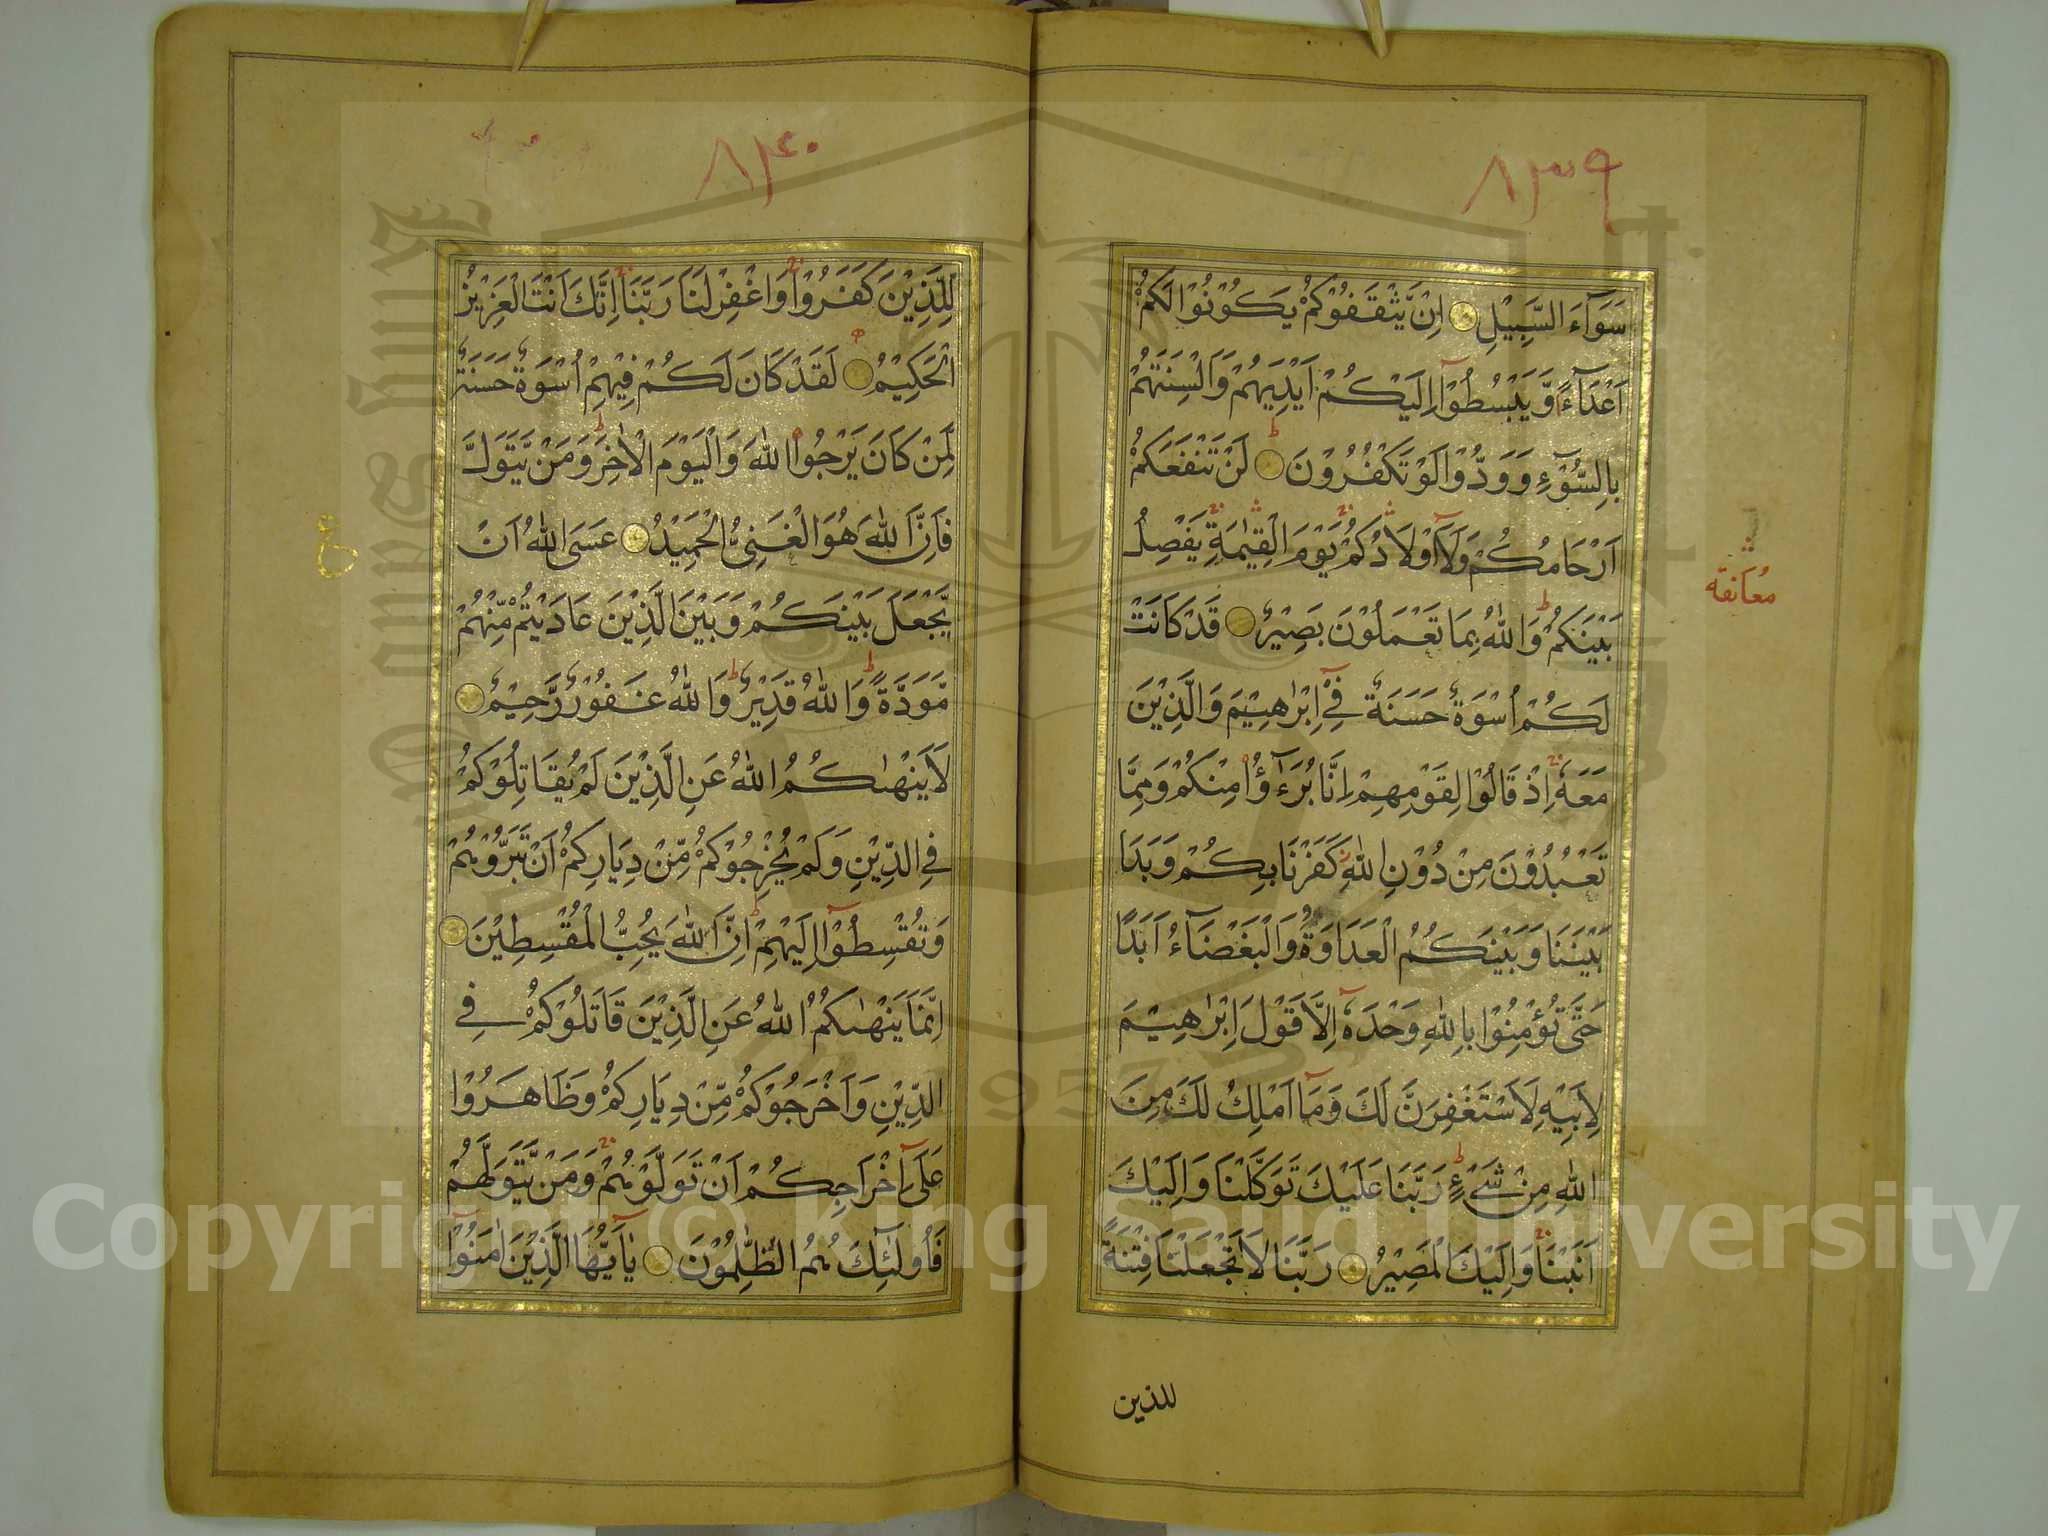 ٨٣٩
سَوَآءَ السَّبِيْلِ اِنْ يَّثْقَفُوْكُمْ يَكُوْنُوْا لَكُمْ
اَعْدَآءً وَّيَبْسُطُوْٓا اِلَيْكُمْ اَيْدِيَهُمْ وَاَلْسِنَتَهُمْ
بِالسُّوْٓءِ وَوَدُّوْا لَوْ تَكْفُرُوْنَ ط لَنْ تَنْفَعَكُمْ
اَرْحَامُكُمْ وَلَآ اَوْلَادُكُمْ يَوْمَ الْقِيٰمَةِ يَفْصِلُ
معانقه
بَيْنَكُمْ ط وَاللّٰهُ بِمَا تَعْمَلُوْنَ بَصِيْرٌ قَدْ كَانَتْ
لَكُمْ اُسْوَةٌ حَسَنَةٌ فِيْٓ اِبْرٰهِيْمَ وَالَّذِيْنَ
مَعَهٗ اِذْ قَالُوْا لِقَوْمِهِمْ اِنَّا بُرَءٰٓؤُا مِنْكُمْ وَمِمَّا
تَعْبُدُوْنَ مِنْ دُوْنِ اللّٰهِ كَفَرْنَا بِكُمْ وَبَدَا
بَيْنَنَا وَبَيْنَكُمُ الْعَدَاوَةُ وَالْبَغْضَآءُ اَبَدًا
حَتّٰى تُؤْمِنُوْا بِاللّٰهِ وَحْدَهٗٓ اِلَّا قَوْلَ اِبْرٰهِيْمَ
لِاَبِيْهِ لَاَسْتَغْفِرَنَّ لَكَ وَمَآ اَمْلِكُ لَكَ مِنَ
اللّٰهِ مِنْ شَيْءٍ ط رَبَّنَا عَلَيْكَ تَوَكَّلْنَا وَاِلَيْكَ
اَنَبْنَا وَاِلَيْكَ الْمَصِيْرُ رَبَّنَا لَا تَجْعَلْنَا فِتْنَةً
للذين
٨٤٠
لِلَّذِيْنَ كَفَرُوْا وَاغْفِرْ لَنَا رَبَّنَا اِنَّكَ اَنْتَ الْعَزِيْزُ
الْحَكِيْمُ لَقَدْ كَانَ لَكُمْ فِيْهِمْ اُسْوَةٌ حَسَنَةٌ
لِّمَنْ كَانَ يَرْجُوا اللّٰهَ وَالْيَوْمَ الْاٰخِرَ ط وَمَنْ يَّتَوَلَّ
فَاِنَّ اللّٰهَ هُوَ الْغَنِيُّ الْحَمِيْدُ عَسَى اللّٰهُ اَنْ
ع
يَّجْعَلَ بَيْنَكُمْ وَبَيْنَ الَّذِيْنَ عَادَيْتُمْ مِّنْهُمْ
مَّوَدَّةً ط وَاللّٰهُ قَدِيْرٌ ط وَاللّٰهُ غَفُوْرٌ رَّحِيْمٌ
لَا يَنْهٰىكُمُ اللّٰهُ عَنِ الَّذِيْنَ لَمْ يُقَاتِلُوْكُمْ
فِي الدِّيْنِ وَلَمْ يُخْرِجُوْكُمْ مِّنْ دِيَارِكُمْ اَنْ تَبَرُّوْهُمْ
وَتُقْسِطُوْٓا اِلَيْهِمْ ط اِنَّ اللّٰهَ يُحِبُّ الْمُقْسِطِيْنَ
اِنَّمَا يَنْهٰىكُمُ اللّٰهُ عَنِ الَّذِيْنَ قَاتَلُوْكُمْ فِي
الدِّيْنِ وَاَخْرَجُوْكُمْ مِّنْ دِيَارِكُمْ وَظَاهَرُوْا
عَلٰٓى اِخْرَاجِكُمْ اَنْ تَوَلَّوْهُمْ وَمَنْ يَّتَوَلَّهُمْ
فَاُولٰٓئِكَ هُمُ الظّٰلِمُوْنَ يٰٓاَيُّهَا الَّذِيْنَ اٰمَنُوْٓا
Copyright © King Saud University